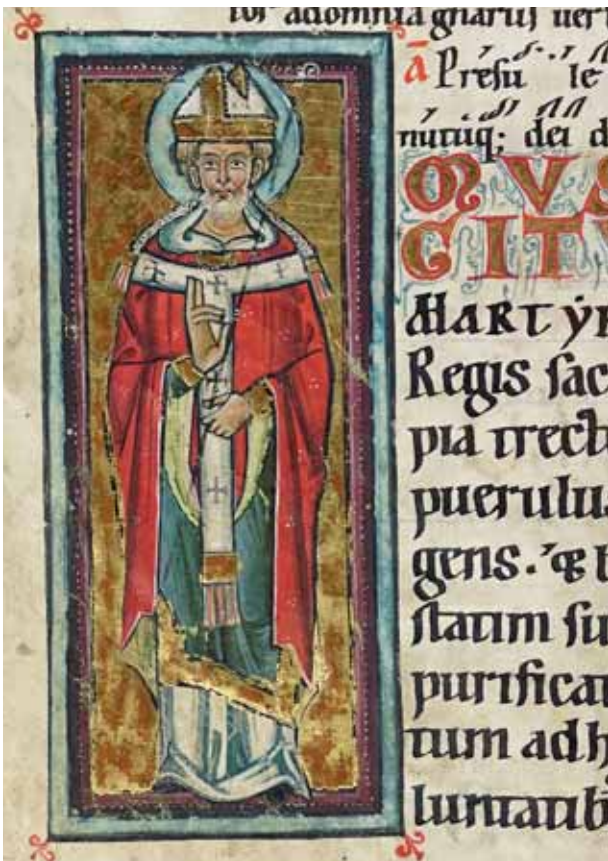 tor ad omnia gnarus uer
a Presu le
nutuq; dei d
MVS
CIT
MARTYR
Regis sac
pia
puerulu
gens. &
statim su
purificat
tum ad h
luntatib